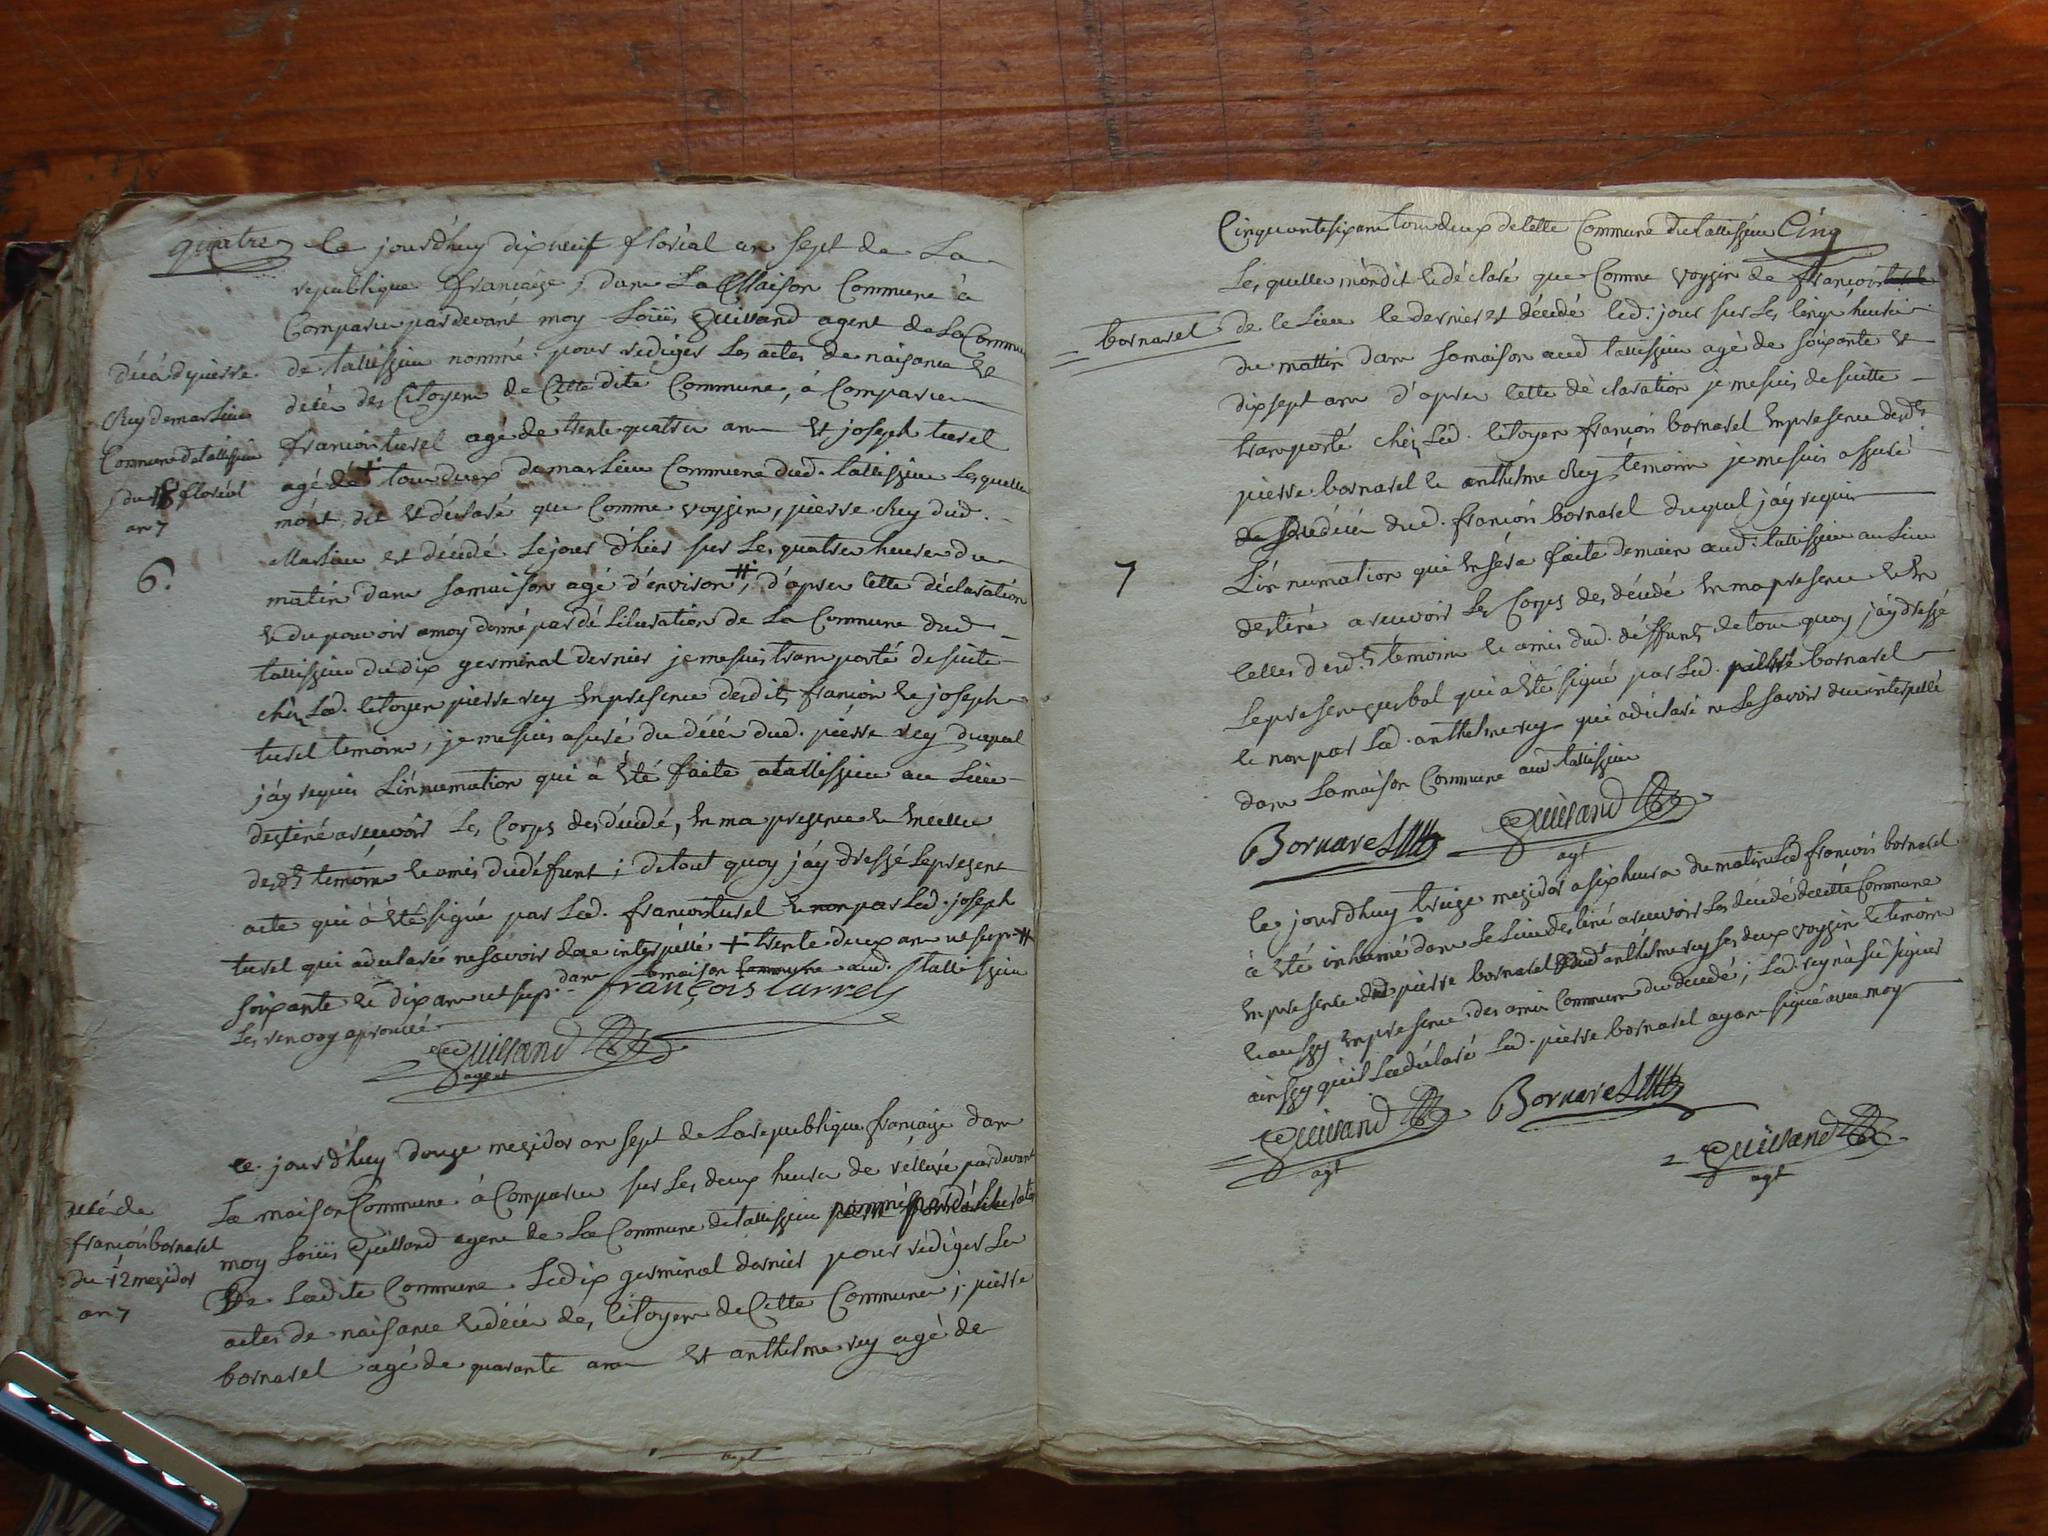 quatre
le jourdhuy dix neuf floréal an sept de La
republique françaize, dans La Maison Commune à
Comparu pardevant moy Loüis Guilland agent de La Commune
de tallissieu nommé pour rediger Les actes de naisance et
décéz des Citoyens de Cette dite Commune, à Comparu
françois turel agé de trente quatre ans et joseph turel
agé de + tous deux de marlieu Commune dud. tallissieu Lesquels
m'ont dit et déclaré que Comme voyzins, pierre Rey dud.
Marlieu est décédé Lejour d'hier sur Les quatre heures du
matin dans samaison agé d'environ #, d'apres cette déclaration
et du pouvoir amoy donné par déliberation de La Commune dud
tallissieu du dix germinal dernier je me suis transporté de suite
chéz Led. Citoyen pierre rey en presence desdits françois et joseph
turel temoins, je me suis asuré du décéz dud. pierre rey duquel
j'ay requis L'innumation qui à été faite a tallissieu au Lieu
destiné a recevoir Les Corps des décédé, en ma presence et en celle
desds témoins et amis du défunt; de tout quoy j'ay dressé Le present
acte qui à été signé par Led. françois turel et non par Led. joseph
turel qui a declaré ne savoir de ce interpellé + trente deux ans ut sup. #
soixante et dix ans ut sup. dans lamaison Commune aud. tallissieu
Les renvoy aprouvé
françois turrel
Guilland
agent
décéz de pierre
Rey de marlieu
Commune de tallissieu
du 18 floréal
an 7
6.
Le jourd'huy douze mezidor an sept de La republique françaize dans
La maison Commune à Comparu sur Les deux heures de rellevé pardevant
moy Loüis Guilland agent de La Commune de tallissieu nommé par déliberation
De Ladite Commune Ledix germinal dernier pour rédiger Les
actes de naisance et décéz des Citoyens de Cette Commune; pierre
bornarel agé de quarante ans et anthelme rey agé de
décéz de
françois bornarel
du 12 mezidor
an 7
agt
Cinquante six ans tous deux de cette Commune de tallissieu
Cinq
Lesquels m'ont dit et déclaré que Comme voyzins de françois
bornarel
de ce Lieu le dernier est décédé led. jour sur Les cinq heures
du mattin dans samaison aud tallissieu agé de soixante et
dix sept ans d'apres cette déclaration je me suis de suitte
transporté chéz Led. Citoyen françois bornarel en presence desds
pierre bornarel et anthelme Rey témoins je me suis assuré
du décéz dud. françois bornarel duquel j'ay requis
7
L'innumation qui en séra faite demain aud. tallissieu au Lieu
destiné a recevoir Les Corps des décédé en ma presence et en
celles desds témoins et amis dud. déffunt de tout quoy j'ay dressé
Le present verbal qui a été signé par Led. pierre bornarel
et non par Led. anthelme rey qui a déclaré ne Le savoir de ce interpellé
dans Lamaison Commune aud tallissieu
Bornarel
Guilland
agt
le jourdhuy treize mezidor a six heures du matin Led françois bornarel
à été inhumé dans Le Lieu destiné a recevoir Les décédé de cette Commune
en presence dud pierre bornarel et dud anthelme rey ses deux voyzins et temoins
et aussy en presence des amis Communs du décédé; Led. rey n'a sû signer
ainssy qu'il La déclaré Led. pierre bornarel ayant signé avec moy
Guilland
agt
Bornarel
Guilland
agt